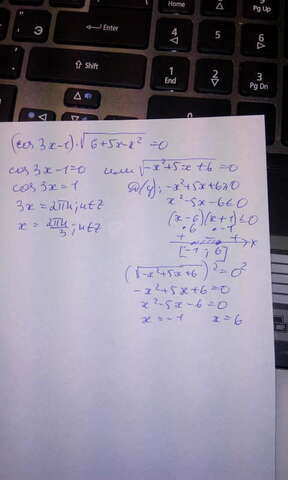 Home
9 Pg Up
Enter
4
5
6
Shift
1 End
2
3 Pg Dn
(cos 3x-1)·√(6+5x-x²) =0
cos 3x-1=0 или √(-x²+5x+6) =0
cos 3x=1 D(y): -x²+5x+6≥0
3x=2πn; n∈Z x²-5x-6≤0
x=2πn/3; n∈Z (x-6)(x+1)≤0
6 -1
+ - + x
[-1; 6]
(√(-x²+5x+6))²=0²
-x²+5x+6=0
x²-5x-6=0
x=-1 x=6